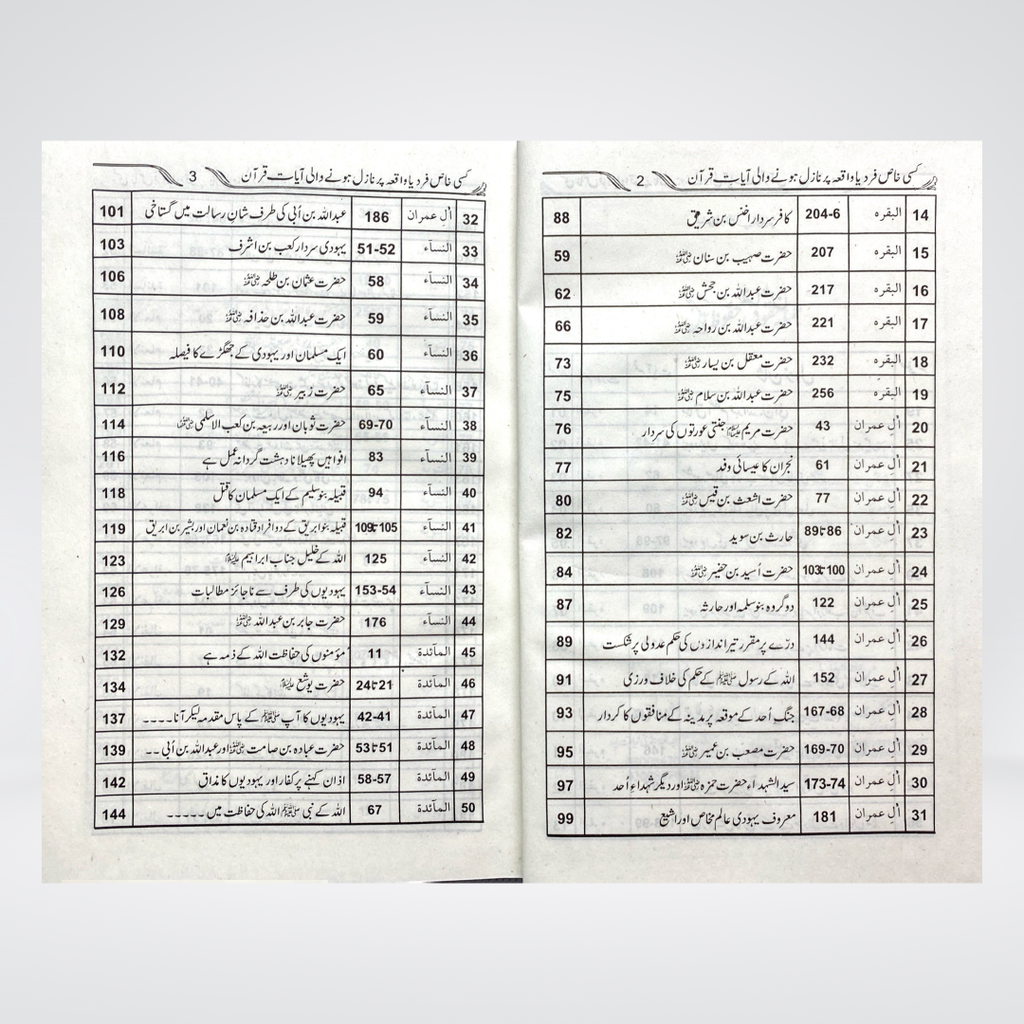 کسی خاص فرد یا واقعہ پر نازل ہونے والی آیات قرآن 2
14 البقرہ 204-6 کافر سردار اخنس بن شریق 88
15 البقرہ 207 حضرت صہیب بن سنان رضی اللہ عنہ 59
16 البقرہ 217 حضرت عبداللہ بن جحش رضی اللہ عنہ 62
17 البقرہ 221 حضرت عبداللہ بن رواحہ رضی اللہ عنہ 66
18 البقرہ 232 حضرت معقل بن یسار رضی اللہ عنہ 73
19 البقرہ 256 حضرت عبداللہ بن سلام رضی اللہ عنہ 75
20 اٰلِ عمران 43 حضرت مریم علیہا السلام جنتی عورتوں کی سردار 76
21 اٰلِ عمران 61 نجران کا عیسائی وفد 77
22 اٰلِ عمران 77 حضرت اشعث بن قیس رضی اللہ عنہ 80
23 اٰلِ عمران 86تا89 حارث بن سوید 82
24 اٰلِ عمران 100تا103 حضرت اُسید بن حضیر رضی اللہ عنہ 84
25 اٰلِ عمران 122 دو گروہ بنو سلمہ اور حارثہ 87
26 اٰلِ عمران 144 درّے پر مقرر تیر اندازوں کی حکم عدولی پر شکست 89
27 اٰلِ عمران 152 اللہ کے رسول ﷺ کے حکم کی خلاف ورزی 91
28 اٰلِ عمران 167-68 جنگِ اُحد کے موقعہ پر مدینہ کے منافقوں کا کردار 93
29 اٰلِ عمران 169-70 حضرت مصعب بن عمیر رضی اللہ عنہ 95
30 اٰلِ عمران 173-74 سید الشہداء حضرت حمزہ رضی اللہ عنہ اور دیگر شہداءِ اُحد 97
31 اٰلِ عمران 181 معروف یہودی عالم فخاص اور اشیع 99
کسی خاص فرد یا واقعہ پر نازل ہونے والی آیات قرآن 3
32 اٰلِ عمران 186 عبداللہ بن اُبی کی طرف شانِ رسالت میں گستاخی 101
33 النسآء 51-52 یہودی سردار کعب بن اشرف 103
34 النسآء 58 حضرت عثمان بن طلحہ رضی اللہ عنہ 106
35 النسآء 59 حضرت عبداللہ بن حذافہ رضی اللہ عنہ 108
36 النسآء 60 ایک مسلمان اور یہودی کے جھگڑے کا فیصلہ 110
37 النسآء 65 حضرت زبیر رضی اللہ عنہ 112
38 النسآء 69-70 حضرت ثوبان اور ربیعہ بن کعب الاسلمی رضی اللہ عنہ 114
39 النسآء 83 افواہیں پھیلانا دہشت گردانہ عمل ہے 116
40 النسآء 94 قبیلہ بنو سلیم کے ایک مسلمان کا قتل 118
41 النسآء 105تا109 قبیلہ بنو ابریق کے دو افراد قتادہ بن نعمان اور بشیر بن ابریق 119
42 النسآء 125 اللہ کے خلیل جناب ابراہیم علیہ السلام 123
43 النسآء 153-54 یہودیوں کی طرف سے ناجائز مطالبات 126
44 النسآء 176 حضرت جابر بن عبداللہ رضی اللہ عنہ 129
45 المآئدۃ 11 مؤمنوں کی حفاظت اللہ کے ذمہ ہے 132
46 المآئدۃ 21تا24 حضرت یوشع علیہ السلام 134
47 المآئدۃ 42-41 یہودیوں کا آپ ﷺ کے پاس مقدمہ لیکر آنا ۔۔۔۔ 137
48 المآئدۃ 51تا53 حضرت عبادہ بن صامت رضی اللہ عنہ اور عبداللہ بن اُبی ۔۔ 139
49 المآئدۃ 58-57 اذان کہنے پر کفار اور یہودیوں کا مذاق 142
50 المآئدۃ 67 اللہ کے نبی ﷺ اللہ کی حفاظت میں ۔۔۔۔۔ 144